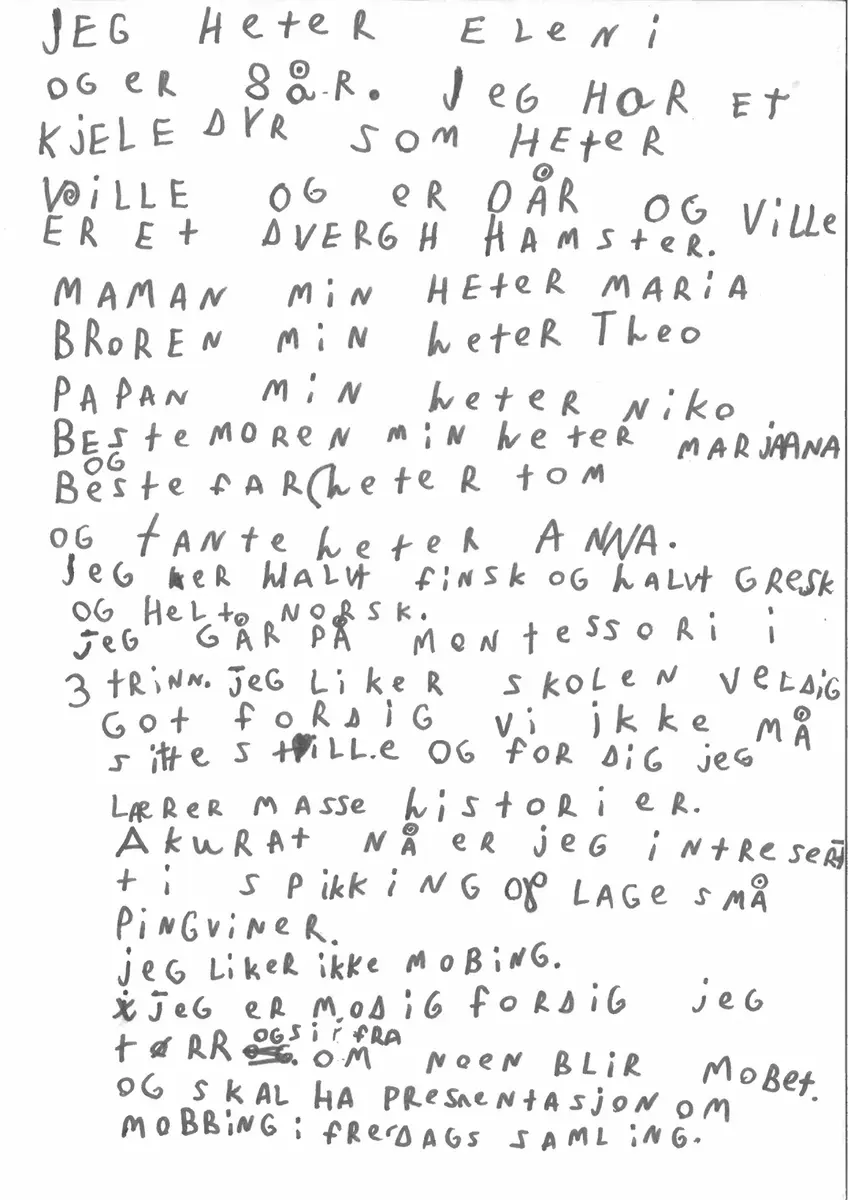 JEG HeteR ELeNi
OG eR 8 åR. JeG HaR Et
KJELE DYR SOM HEteR
ViLLE OG eR 0 ÅR OG ViLLe
ER Et DVERGH HAMSteR.
MAMAN MiN HEteR MARiA
BRoREN MiN heteR Theo
PAPAN MiN heteR Niko
BESteMOREN MiN heteR MARJAANA
OG
BestefAR heteR tOM
OG tANte heteR ANNA.
JeG eR HALVt fiNSK OG hALVt GReSK
OG HeLt NORSK.
jeG GÅR PÅ MONtessORi i
3 tRiNN. jeG LikeR skOLeN VeLDiG
GOt fORDiG Vi ikke MÅ
sitte stiLLe OG fOR DiG jeG
LÆReR MASSe histORieR.
AkuRAt NÅ eR jeG iNtReseRt
ti sPikkiNG Og LAGe sMÅ
PiNGViNeR.
jeG LikeR ikke MOBiNG.
jeG eR MODiG fORDiG jeG
OG SiR fRA
tøRR OM NOeN BLiR MOBet.
OG skAL HA PResneNtAsjON OM
MOBBiNG i fReDAGs sAMLiNG.